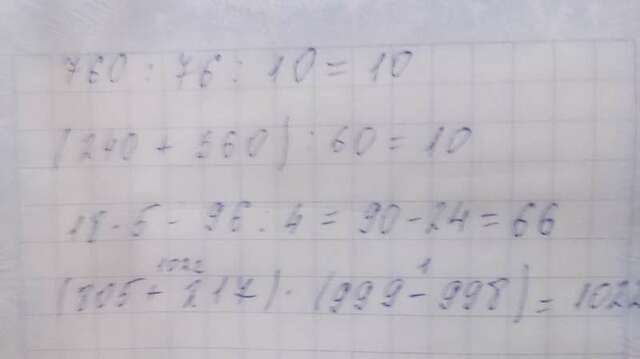 760 : 76 : 10 = 10
(240 + 360) : 60 = 10
18 · 5 - 96 : 4 = 90 - 24 = 66
1022 1
(805 + 217) · (999 - 998) = 1022